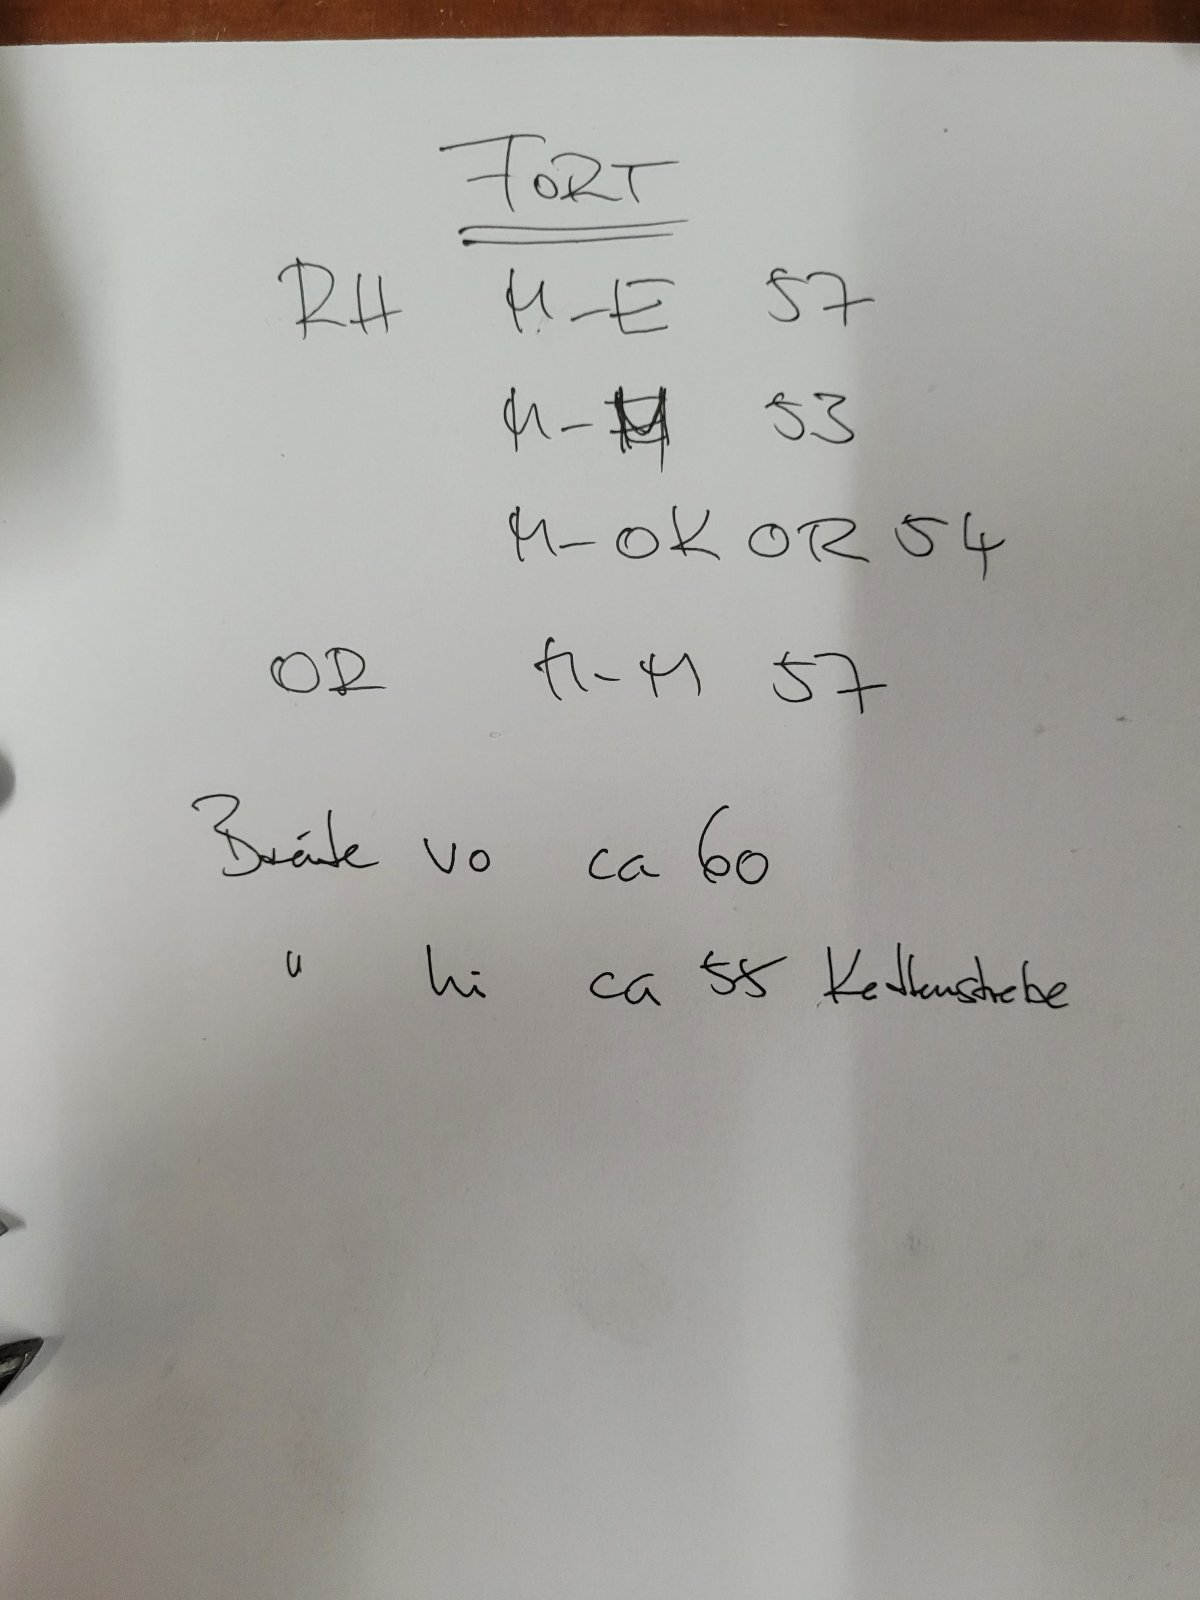 FORT
RH M-E 57
M-M 53
M-OK OR 54
OR M-M 57
Breite vo ca 60
" hi ca 55 Kettenstrebe